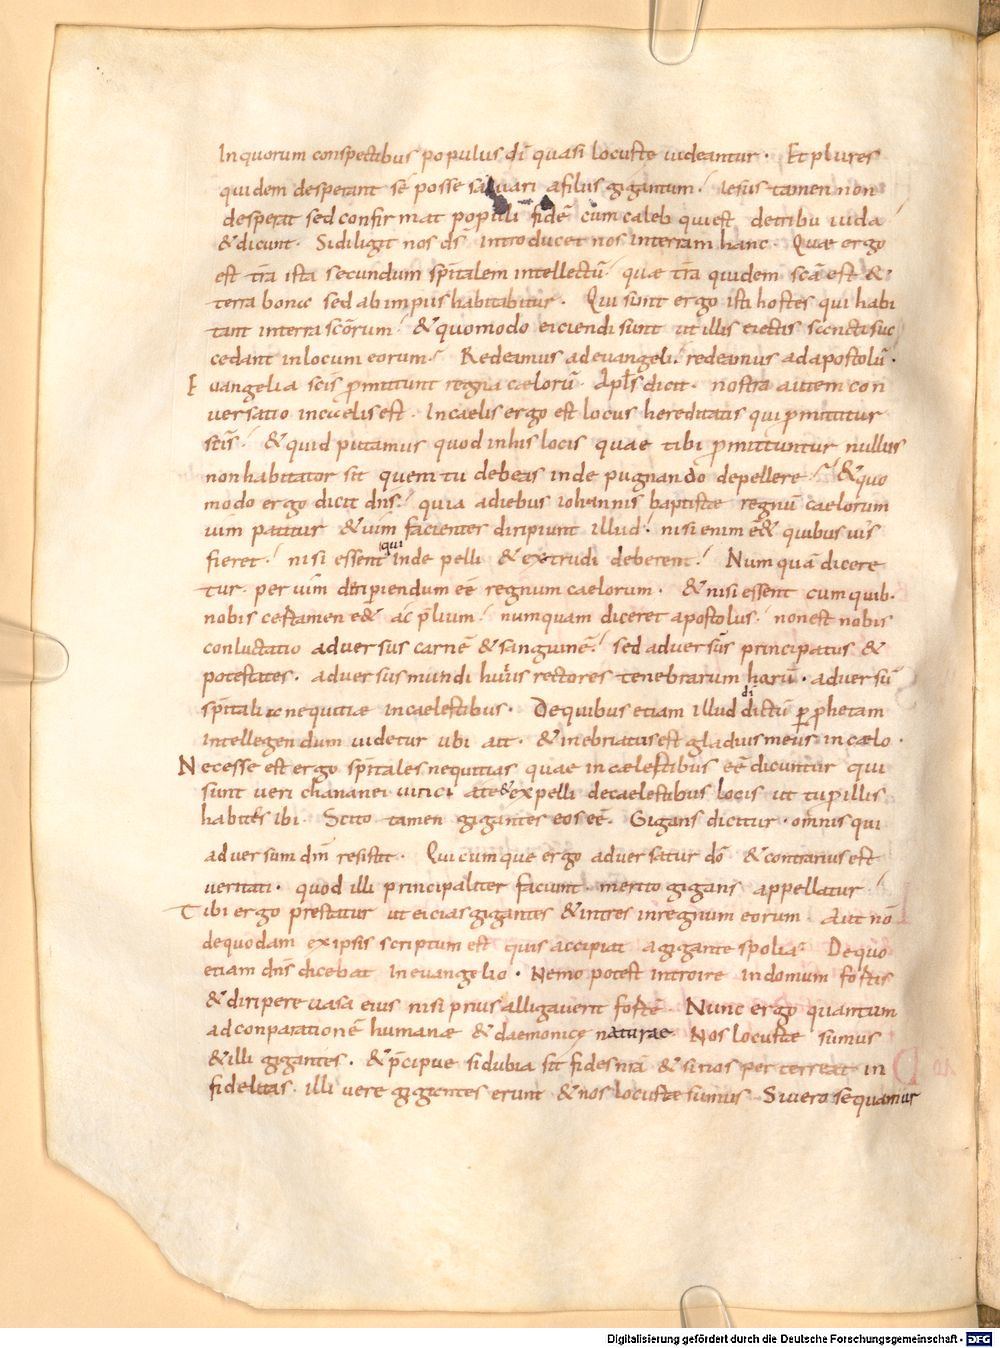 In quorum conspectibus populus dī quasi locuste uideantur· Et plures
quidem desperant sē posse saluari afilus gigantum· iesus tamen non
desperat sed confirmat populi fidē cum caleb qui est detribu iuda
& dicunt· Si diligit nos ds̄ introducet nos interram hanc· Quae ergo
est tr̄a ista secundum sp̄italem intellectū· quae tr̄a quidem scā est &
terra bona sed abimpiis habitabitur· Qui sunt ergo isti hostes qui habi
tant interra scōrum· & quomodo eiciendi sunt ut illis eiectis sc̄ncti suc
cedant inlocum eorum· Redeamus adeuangeli· redeamus adapostolū·
Euangelia scīs p̄mittunt regna caelorū· Apl̄s dicit· nostra autem con
uersatio incaelis est· Incaelis ergo est locus hereditatis qui p̄mittitur
sc̄is· & quid putamus quod inhis locis quae tibi p̄mittuntur nullus
non habitator sit quem tu debeas inde pugnando depellere· & quo
modo ergo dicit dn̄s· quia adiebus iohannis baptistae regnū caelorum
uim patitur & uim facientes diripiunt illud· nisi enim e&̄ quibus uis
fieret· nisi essent qui inde pelli & extrudi deberent· Numquā dicere
tur· per uim diripiendum eē regnum caelorum· & nisi essent cum quib·
nobis certamen e&̄ ac p̄lium· numquam diceret apostolus· non est nobis
conluctatio aduersus carnē & sanguinē· sed aduersus principatus &
potestates· aduersus mundi huius rectores tenebrarum harū· aduersū
sp̄italia nequitiae incaelestibus· Dequibus etiam illud dictū per p̄phetam
intellegendum uidetur ubi ait· & inebriatus est gladius meus incaelo·
Necesse est ergo sp̄itales nequitias quae incaelestibus eē dicuntur qui
sunt ueri chananei uinci ate & expelli decaelestibus locis ut tu pro illis
habites ibi· Scito tamen gigantes eos eē· Gigans dicitur· omnis qui
aduersum dn̄m resistit· Quicumque ergo aduersatur dō & contrarius est
ueritati· quod illi principaliter faciunt· merito gigans appellatur·
Tibi ergo prestatur ut eicias gigantes & intres inregnum eorum· Aut nō
dequodam exipsis scriptum est quis accipiet agigante spolia· Dequo
etiam dn̄s dicebat Ineuangelio· Nemo potest introire indomum fortis
& diripere uasa eius nisi prius alligauerit fortē· Nunc ergo quantum
adconparationē humanae & daemonicę naturae Nos locustae sumus
& illi gigantes· & p̄cipue si dubia sit fides nr̄a & si nos perterreat in
fidelitas· illi uere gigantes erunt & nos locustae sumus· Si uero sequamur
Digitalisierung gefördert durch die Deutsche Forschungsgemeinschaft - DFG